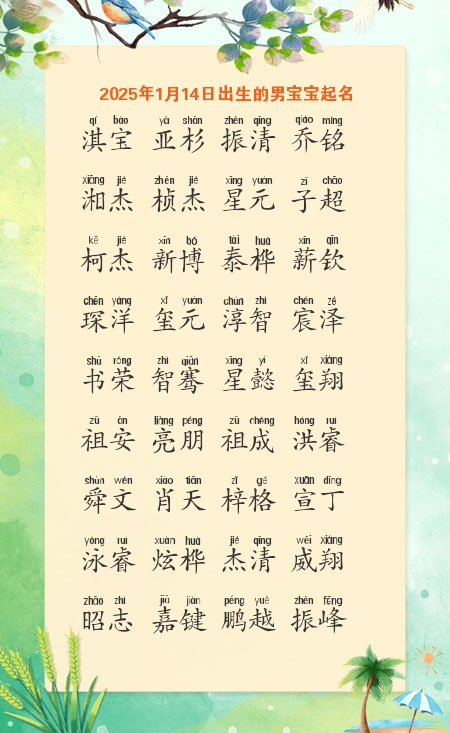 2025年1月14日出生的男宝宝起名
qí bǎo yà shān zhèn qīng qiáo míng
淇宝 亚杉 振清 乔铭
xiāng jié zhēn jié xīng yuán zǐ chāo
湘杰 桢杰 星元 子超
kē jié xīn bó tài huà xīn qīn
柯杰 新博 泰桦 薪钦
chēn yáng xǐ yuán chún zhì chén zé
琛洋 玺元 淳智 宸泽
shū róng zhì qiān xīng yì xǐ xiáng
书荣 智骞 星懿 玺翔
zǔ ān liàng péng zǔ chéng hóng ruì
祖安 亮朋 祖成 洪睿
shùn wén xiào tiān zǐ gé xuān dīng
舜文 肖天 梓格 宣丁
yǒng ruì xuàn huà jié qīng wēi xiáng
泳睿 炫桦 杰清 威翔
zhāo zhì jiā jiàn péng yuè zhèn fēng
昭志 嘉键 鹏越 振峰